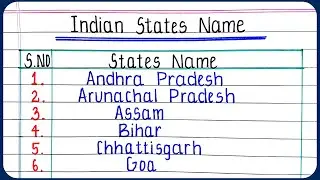 Indian States Name
S.NO States Name
1. Andhra Pradesh
2. Arunachal Pradesh
3. Assam
4. Bihar
5. Chhattisgarh
6. Goa